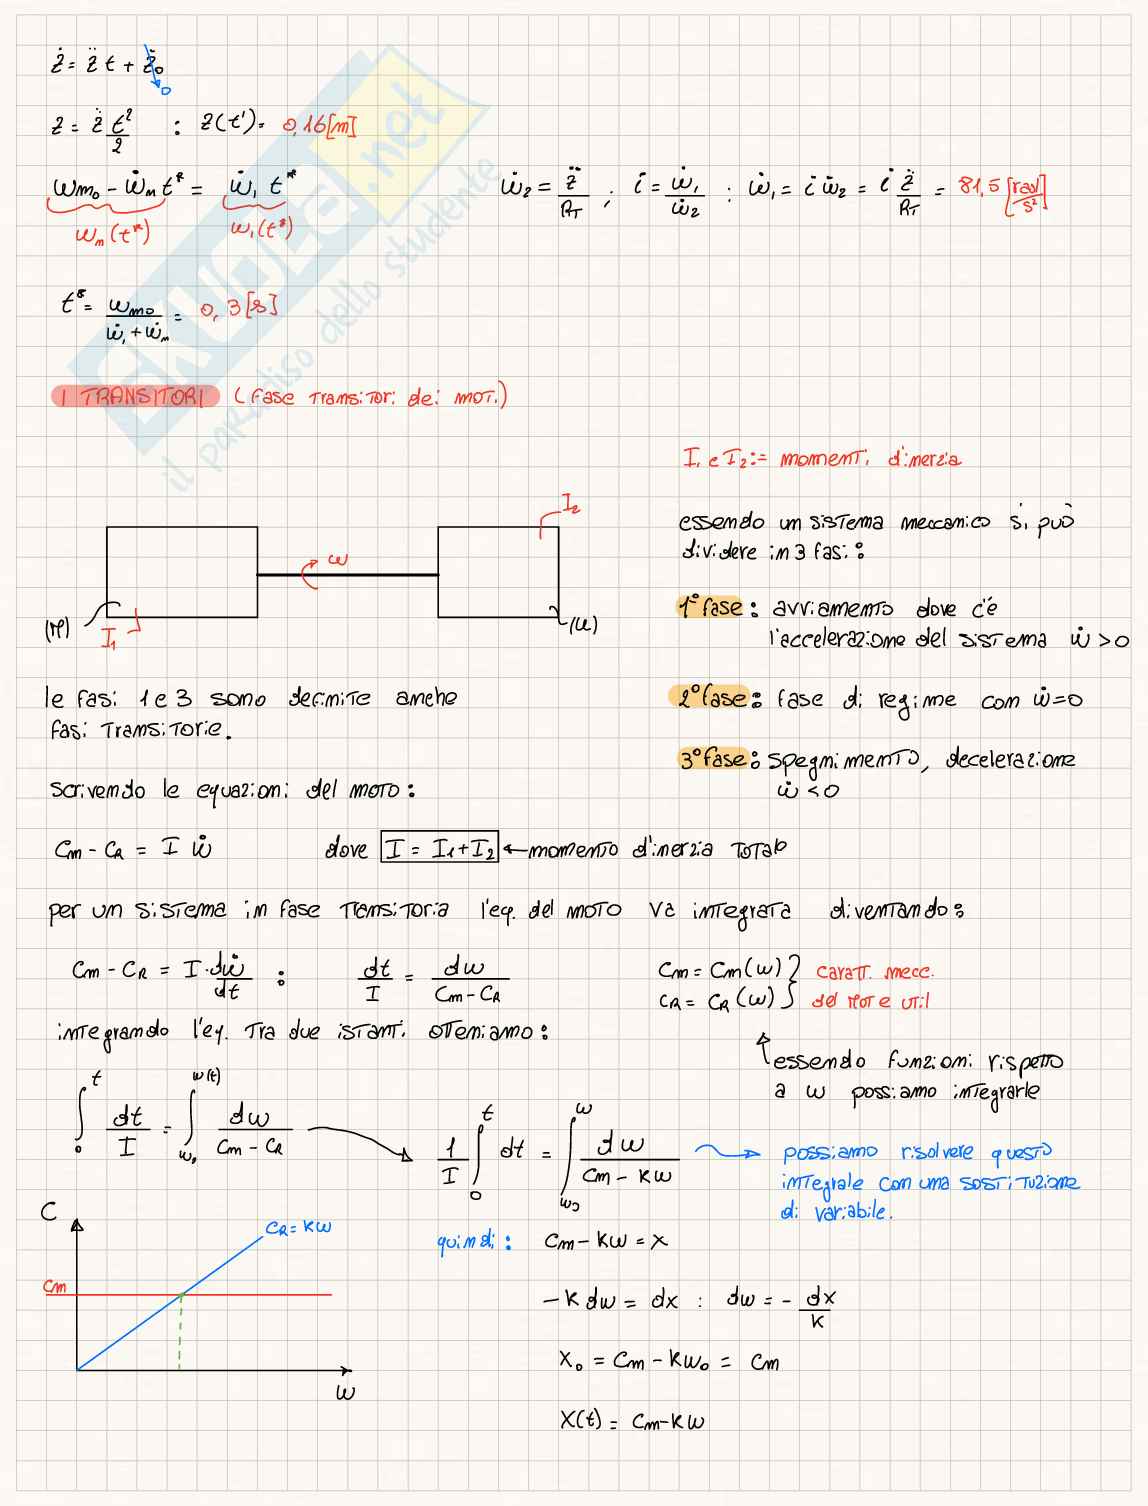 ż = z̈ t + ż₀ → 0
z = z̈ t²/2 : z(t') = 0,16 [m]
ωm₀ - ω̇m t* = ω̇₁ t*
ωm(t*) ω₁(t*)
ω̇₂ = z̈/RT ; i = ω̇₁/ω̇₂ : ω̇₁ = i ω̇₂ = i z̈/RT = 81,5 [rad/s²]
t* = ωm₀/(ω̇₁ + ω̇m) = 0,3 [s]
I TRANSITORI (fase transitori dei mot.)
I₁ e I₂ := momenti d'inerzia
I₂
ω
(M)
I₁
(U)
essendo un sistema meccanico si può
dividere in 3 fasi:
1° fase: avviamento dove c'è
l'accelerazione del sistema ω̇ > 0
2° fase: fase di regime con ω̇ = 0
3° fase: spegnimento, decelerazione
ω̇ < 0
le fasi 1 e 3 sono definite anche
fasi transitorie.
scrivendo le equazioni del moto:
Cm - CR = I ω̇ dove I = I₁ + I₂ ← momento d'inerzia totale
per un sistema in fase transitoria l'eq. del moto va integrata diventando:
Cm - CR = I · dω̇/dt : dt/I = dω/(Cm - CR)
Cm = Cm(ω)
CR = CR(ω)
} caratt. mecc.
del mot e util
integrando l'eq. tra due istanti otteniamo:
essendo funzioni rispetto
a ω possiamo integrarle
∫₀ᵗ dt/I = ∫_ω₀^ω(t) dω/(Cm - CR)
1/I ∫₀ᵗ dt = ∫_ω₀^ω dω/(Cm - kω)
possiamo risolvere questo
integrale con una sostituzione
di variabile.
C
CR = kω
Cm
ω
quindi: Cm - kω = x
-k dω = dx : dω = - dx/k
x₀ = Cm - kω₀ = Cm
x(t) = Cm - kω
SKUOLA.net
il paradiso dello studente